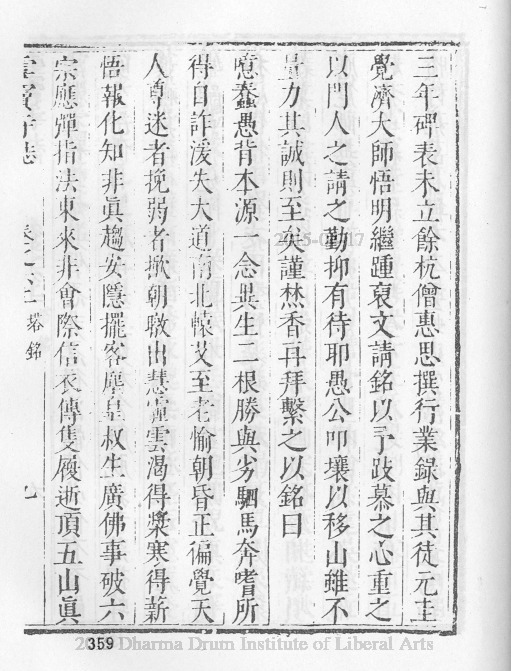 三年碑表未立餘杭僧惠思撰行業録與其徒元圭
覺濟大師悟明繼踵裒文請銘以予跂慕之心重之
以門人之請之勤抑有待耶愚公叩壤以移山雖不
量力其誠則至矣謹焚香再拜繫之以銘曰
噫蠢愚背本源一念異生二根勝與劣駟馬奔嗜所
得自詐湲失大道南北轅艾至老愉朝昏正徧覺天
人尊迷者挽弱者掀朝暾出慧雲渴得漿寒得新
悟報化知非眞趨安隱擺客塵皇叔生廣佛事破六
宗應彈指法東來非會際信衣傳隻履逝頂五山眞
雪竇寺志 卷之六 塔銘 九
2015-0 17
359
20 Dharma Drum Institute of Liberal Arts